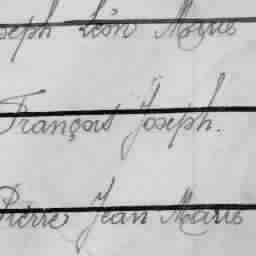 seph Léon Marie
François Joseph.
Pierre Jean Marie